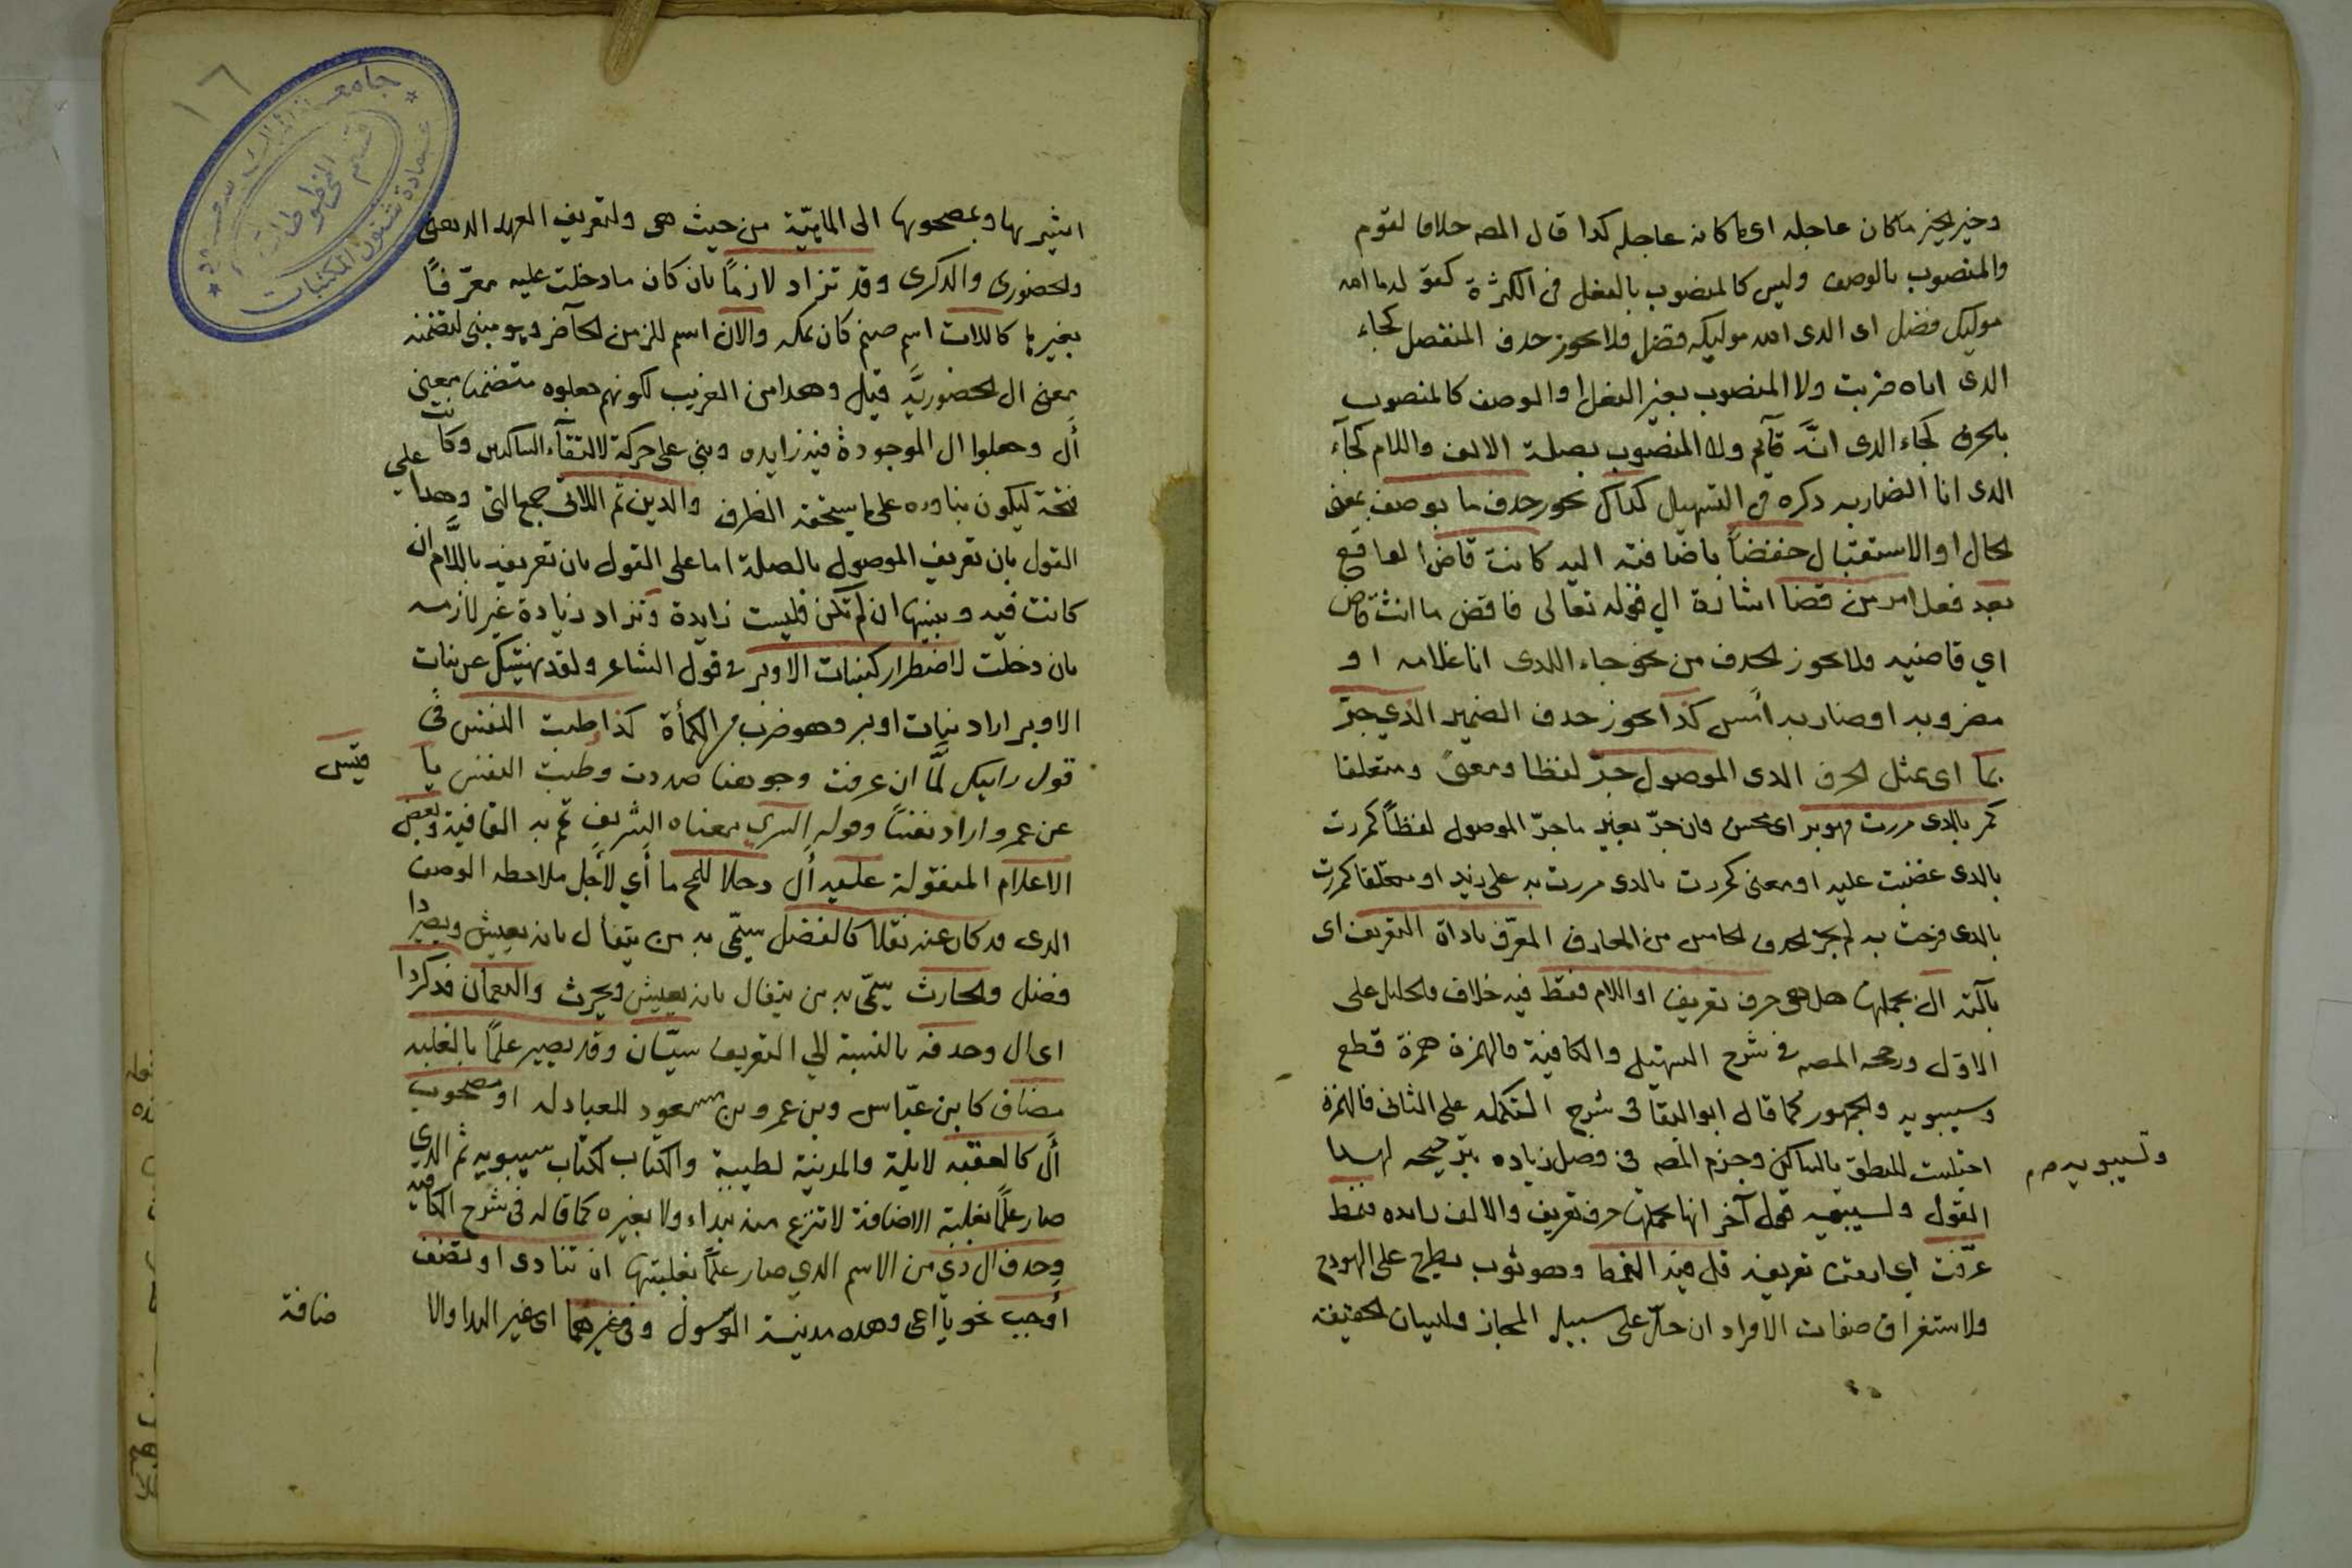 وخير الخير ما كان عاجله اى ما كانه عاجله كدا قال المصه خلافا لقوم
والمنصوب بالوصف وليس كالمنصوب بالفعل فى الكثرة كقوله ما الله
موليك فضل اى الدى الله موليكه فضل فلا يجوز حدف المنفصل كجاء
الدى اياه ضربت ولا المنصوب بغير الفعل او الوصف كالمنصوب
بالحرف كجاء الدى انَّه قآيم ولا المنصوب بصلة الالف واللام كجآء
الدى انا الضاربه دكره فى التسهيل كداك يجوز حدف ما بوصف بمعنى
الحال او الاستقبال خفضاً باضافته اليه كانت قاض الواقع
بعد فعل امر من قضا اشارة الى قوله تعالى فاقض ما انت قاض
اي قاضيه ولا يجوز الحدف من نحو جاء اللدى انا غلامه او
مضروبه او ضاربه امس كذا يجوز حدف الضمير الذي جرّ
بما اى بمثل الحرف الدى الموصول جرّ لفظا ومعنىً ومتعلقا
كمر بالدى مررت فهو بر اى محسن فان جرّ بغير ما جرّ الموصول لفظاً كمررت
بالدى غضبت عليه او معنى كمررت بالدى مررت به على زيد او متعلقا كمررت
بالدى فرحت به لم يجز الحدف الخامس من المعارف المعرّف باداة التعريف اى
بآلته ال بجملتها هل هى حرف تعريف او اللام فقط فيه خلاف فالخليل على
الاوّل ورجحه المصه فى شرح التسهيل والكافية فالهمزة همزة قطع
وسيبويه والجمهور كما قال ابو البقا فى شرح التكمله على الثانى فالهمزة
اجتلبت للنطق بالساكن وجزم المصه فى فصل زيادة همزة الوصل بترجيحه لهدا
ولسيبويه
القول ولسيبويه قول آخر انها بجملتها حرف تعريف والالف زايده فنمط
عرّفت اى اردت تعريفه قل فيه النمط وهو ثوب يطرح على الهودج
ولاستغراق صفات الافراد ان حلّ على سبيل المجاز ولبيان الحقيقة
١٦
جامعة الملك سعود
عمادة شئون المكتبات
قسم المخطوطات
اشير بها وبمصحوبها الى الماهيّة من حيث هى ولتعريف العهد الدهنى
والحضورى والدكرى وقد تزاد لازماً بان كان ما دخلت عليه معرّفاً
بغيرها كاللات اسم صنم كان بمكه والان اسم للزمن الحآضر وهو مبنى لتضمنه
معنى ال الحضوريَّه قيل وهدا من الغريب لكونهم جعلوه متضمنا معنى
أل وجعلوا ال الموجودة فيه زايده وبنى على حركة لالتقآء الساكنين وكانت
فتحة ليكون بناوه على ما يستحقه الظرف والدين ثم اللاتى جمع التى وهدا على
القول بان تعريف الموصول بالصلة اما على القول بان تعريفه باللَّام ان
كانت فيه وبنيتها ان لم تكن فليست زايدة وتزاد زيادة غير لازمه
بان دخلت لاضطرار كبنات الاوبر فى قول الشاعر ولقد نهيتك عن بنات
الاوبر اراد بنات اوبر وهو ضرب من الكمأة كذا طبت النفس فى
قول رايتك لمَّا ان عرفت وجوهنا صددت وطبت النفس يا قيس
عن عمرو اراد نفساً وقوله السري معناه الشريف تم به القافية وبعض
الاعلام المنقولة عليه أل دخلا للمح ما أي لأجل ملاحظه الوصف
الدى قد كان عنه نقلا كالفضل سمّى به من يتفأل بانه يعيش ويصير دا
فضل والحارث سمّى به من يتفال بانه يعيش ويحرث والنعمان فدكر دا
اى ال وحدفه بالنسبة الي التعريف سيّان وقد يصير علماً بالغلبه
مضاف كابن عبّاس وبن عمر وبن مسعود للعبادله او مصحوب
أل كالعقبه لايلة والمدينة لطيبة والكتاب لكتاب سيبويه ثم الدي
صار علماً بغلبة الاضافة لا تنزع منه بنداء ولا بغيره كما قاله فى شرح الكافيه
وحدف ال ذي من الاسم الدي صار علماً بغلبتها ان تنادى او تضف
أوجب نحو يا اعى وهده مدينة الرسول وفى غيرهما اى غير الندا والا ضافة